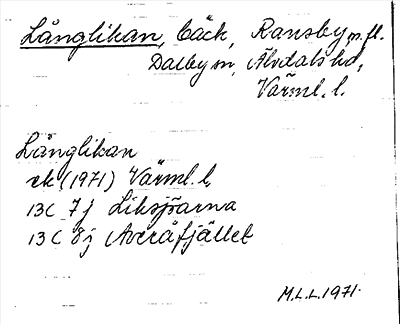 Långlikan, bäck, Ransby, m.fl.
Dalby sn, Älvdals hd,
Värml. l.
Långlikan
ek (1971) Värml. l.
13C 7j Likstjärna
13C 8j Averåfjället
M.L.L. 1971.